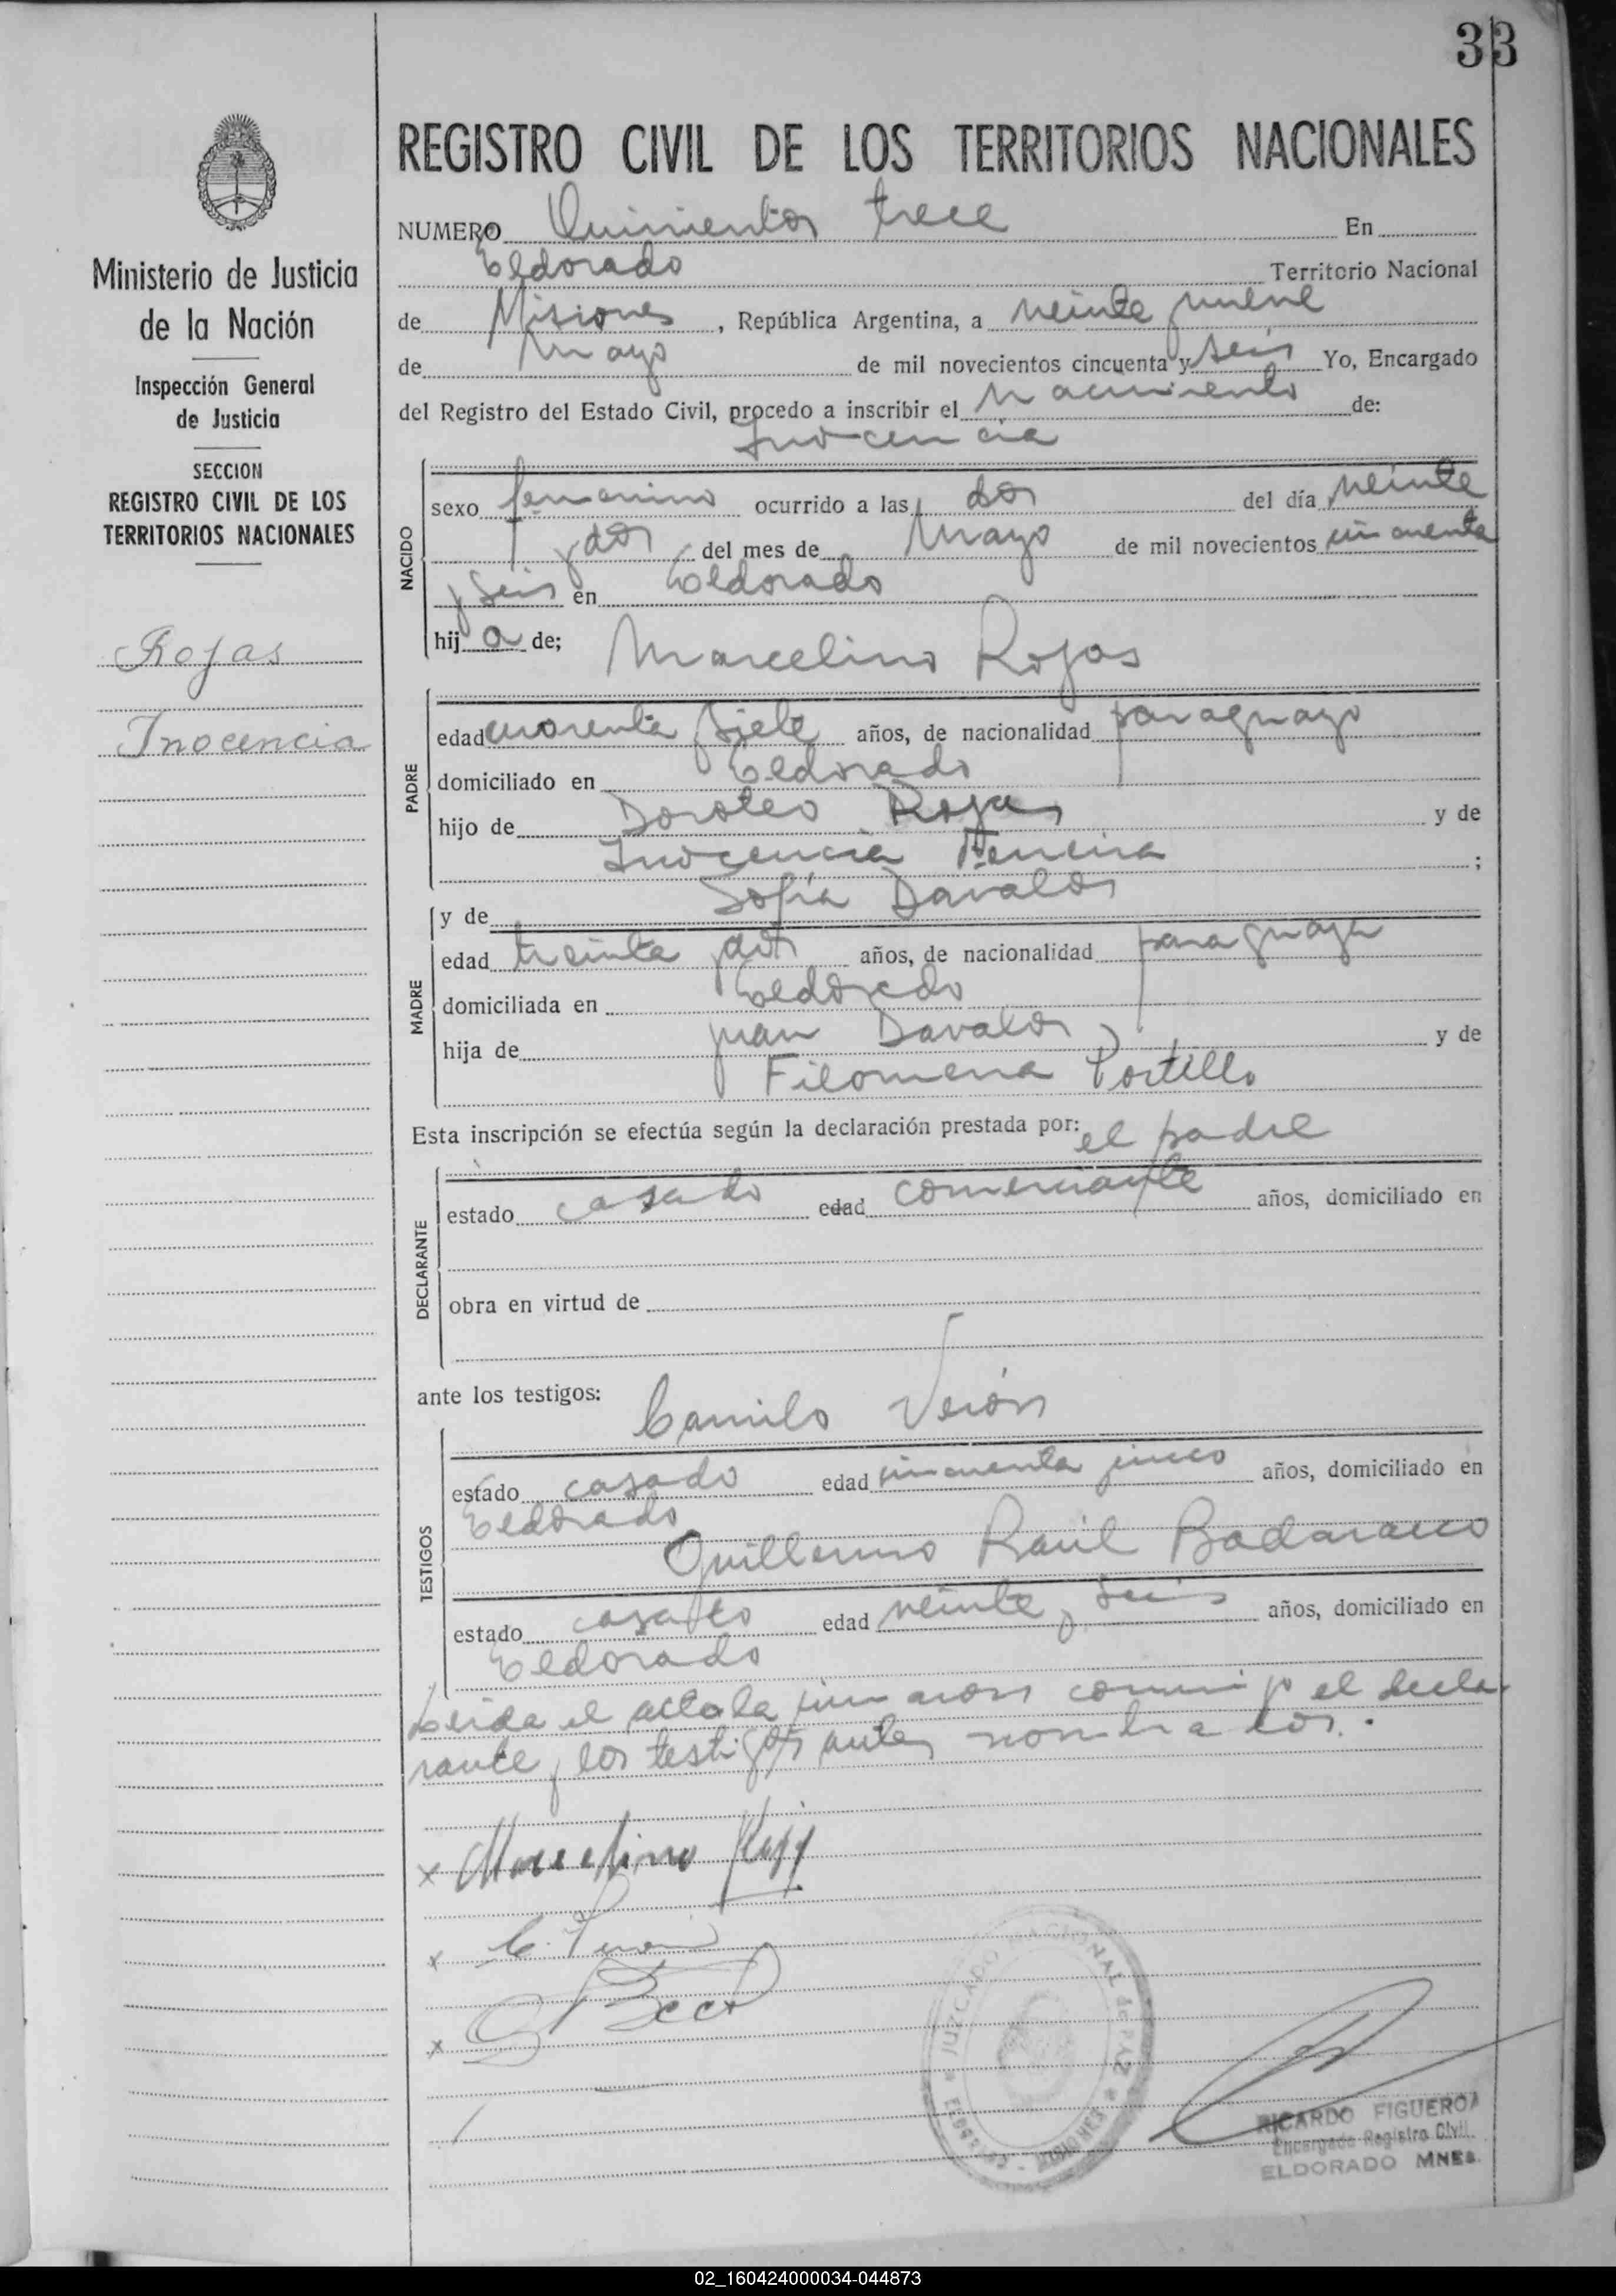 33
REGISTRO CIVIL DE LOS TERRITORIOS NACIONALES
Ministerio de Justicia
de la Nación
Inspección General
de Justicia
SECCION
REGISTRO CIVIL DE LOS
TERRITORIOS NACIONALES
Rojas
Inocencia
NUMERO Quinientos trece En
Eldorado Territorio Nacional
de Misiones, República Argentina, a veinte y nueve
de Mayo de mil novecientos cincuenta y seis Yo, Encargado
del Registro del Estado Civil, procedo a inscribir el nacimiento de:
Inocencia
NACIDO
sexo femenino ocurrido a las dos del día veinte
y dos del mes de Mayo de mil novecientos cincuenta
y seis en Eldorado
hija de; Marcelino Rojas
PADRE
edad cuarenta y siete años, de nacionalidad paraguayo
domiciliado en Eldorado
hijo de Doroteo Rojas y de
Inocencia ;
y de Sofía Davalos
MADRE
edad treinta y dos años, de nacionalidad paraguaya
domiciliada en Eldorado
hija de Juan Davalos y de
Filomena Portillo
Esta inscripción se efectúa según la declaración prestada por: el padre
DECLARANTE
estado casado edad comerciante años, domiciliado en
obra en virtud de
ante los testigos: Camilo Verón
TESTIGOS
estado casado edad cincuenta y cinco años, domiciliado en
Eldorado
Guillermo Raúl Badaracco
estado casado edad veinte y seis años, domiciliado en
Eldorado
Leida el acta la firmaron conmigo el decla
rante y los testigos antes nombrados.
x Marcelino Rojas
x
x
JUZGADO NACIONAL de PAZ
ELDORADO - MISIONES
RICARDO FIGUEROA
Encargado Registro Civil
ELDORADO MNES.
02_160424000034-044873